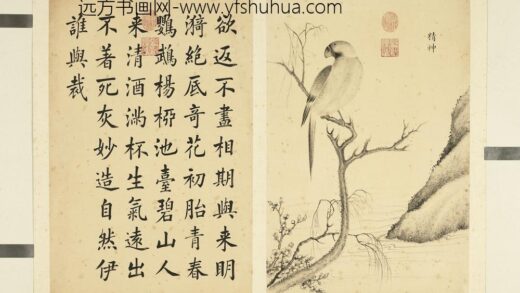 远方书画网-www.yfshuhua.com
精神
欲返不盡相期與来明
漪絶底奇花初胎青春
鸚鵡楊柳池臺碧山人
来清酒滿杯生氣遠出
不著死灰妙造自然伊
誰與裁